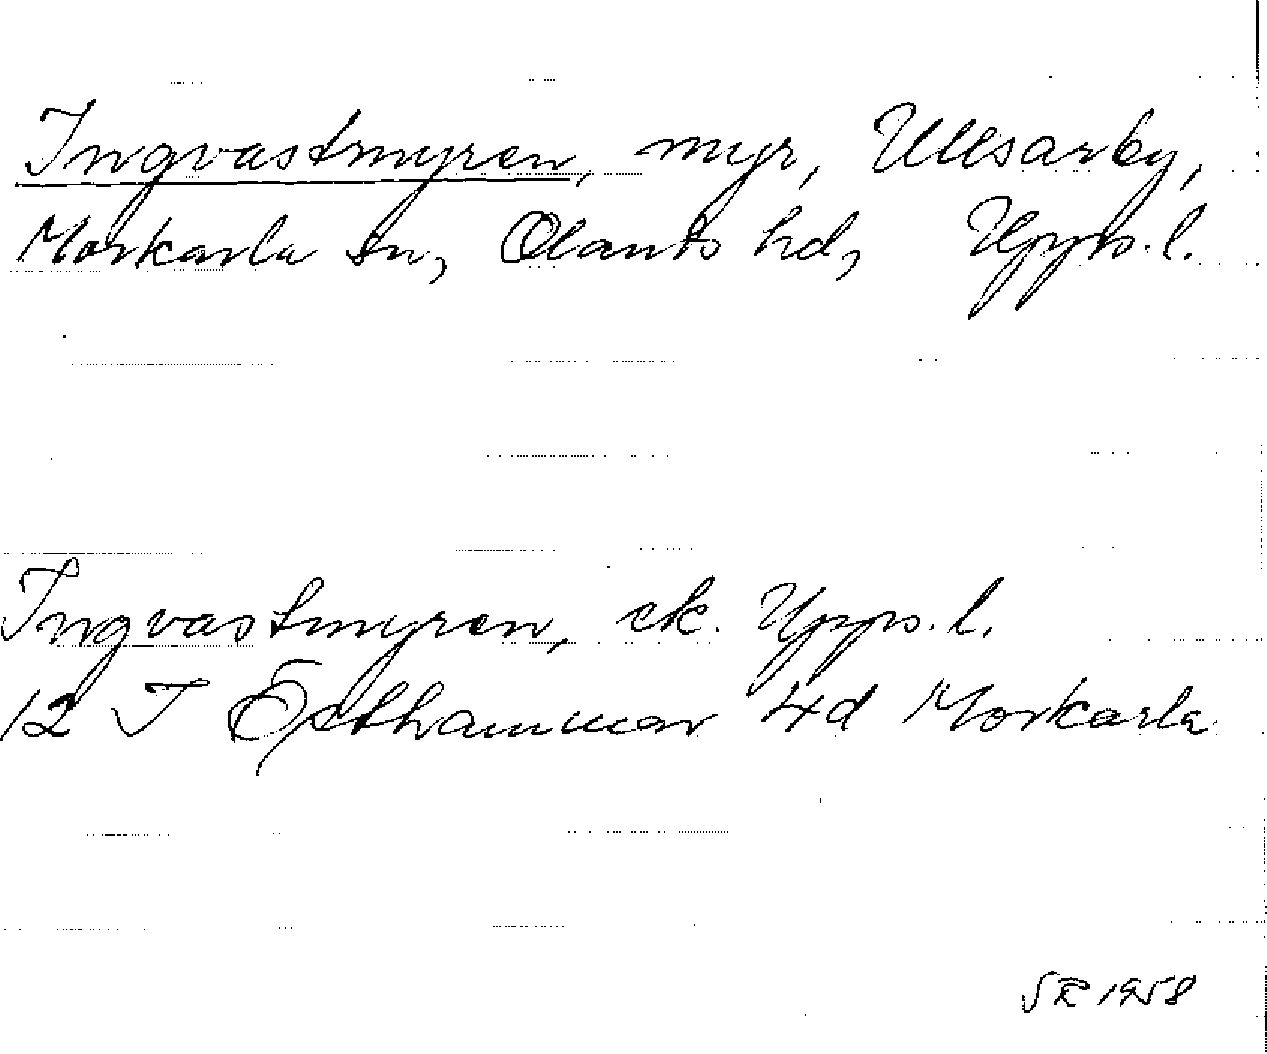 Ingvastmyren, myr, Ullsarby,
Morkarla sn, Olands hd, Upps. l.
Ingvastmyren, ek. Upps. l.
12 I Östhammar 4d Morkarla
1958